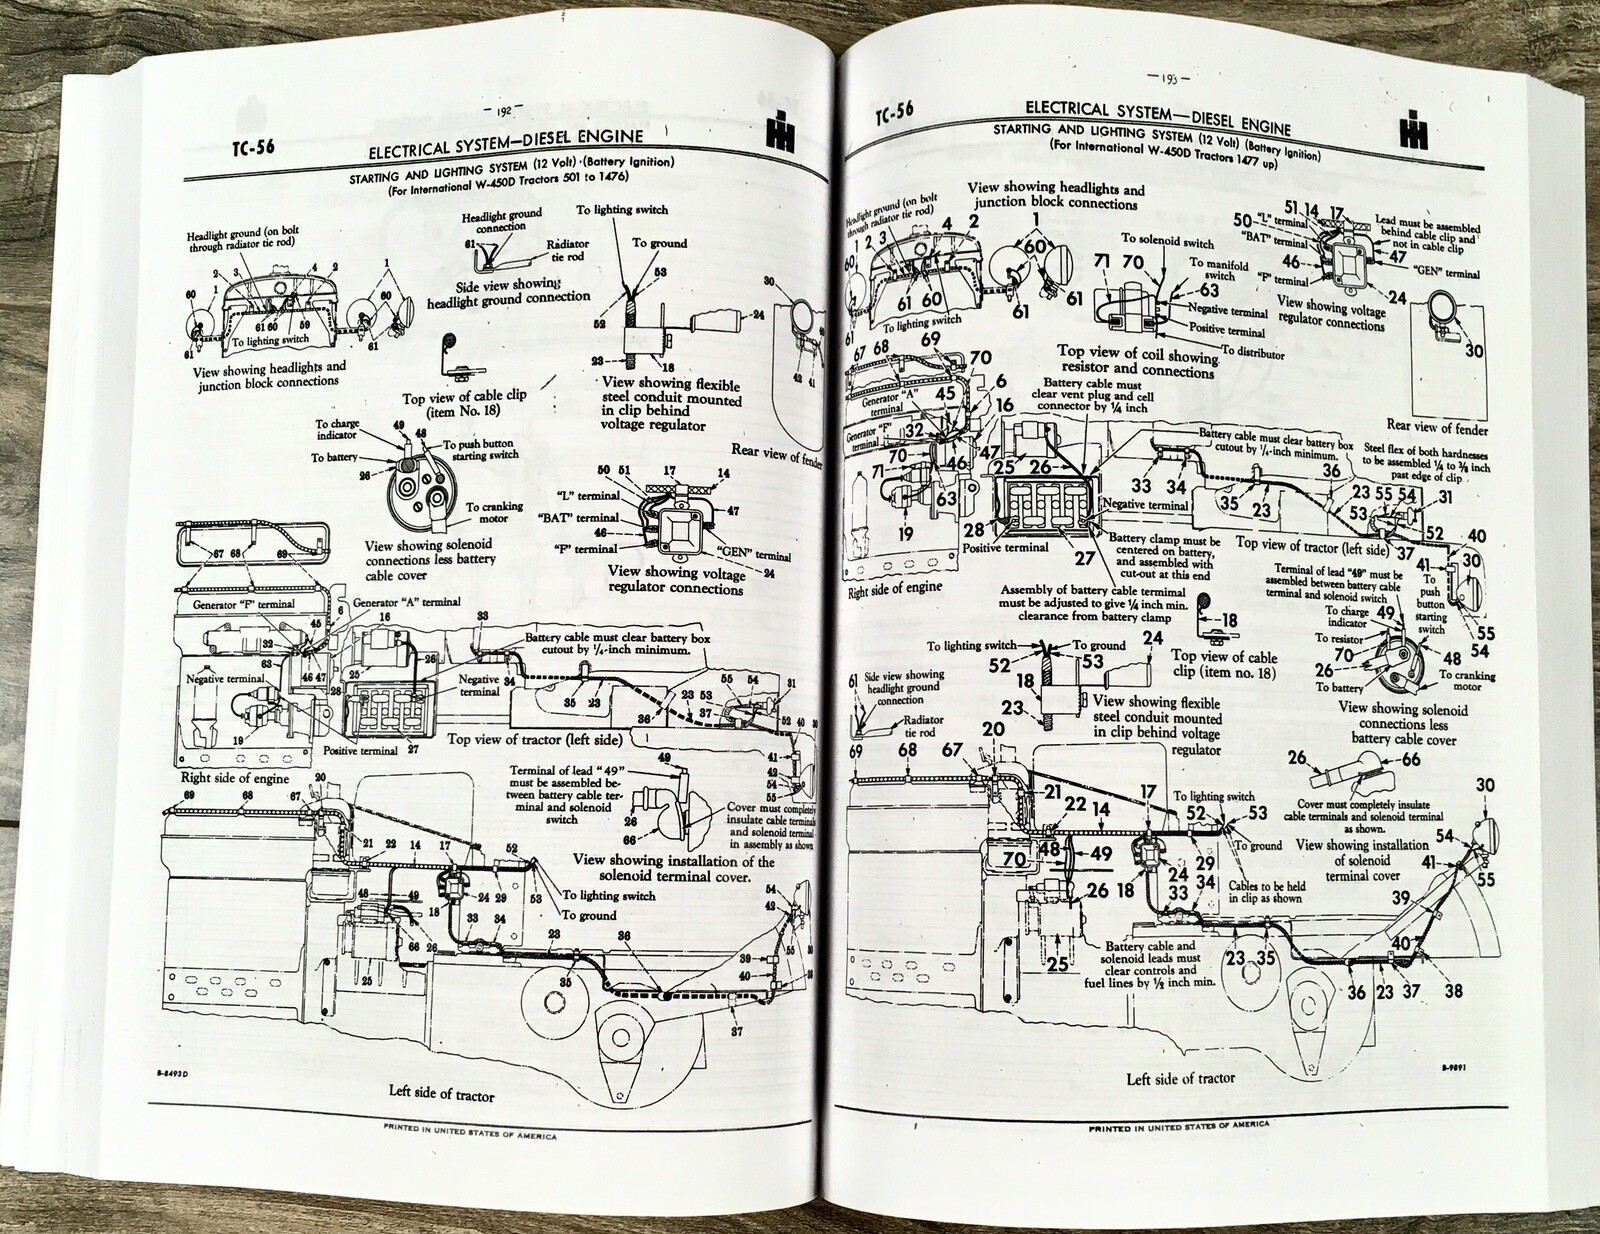 — 192 —
TC-56
ELECTRICAL SYSTEM—DIESEL ENGINE
STARTING AND LIGHTING SYSTEM (12 Volt) (Battery Ignition)
(For International W-450D Tractors 501 to 1476)
Headlight ground (on bolt
through radiator tie rod)
2 3 4 2 1
1
60 60
61 60 59
61 61
To lighting switch
View showing headlights and
junction block connections
Headlight ground
connection
61
Radiator
tie rod
Side view showing
headlight ground connection
Top view of cable clip
(item No. 18)
To lighting switch
To ground
53
52
24
23
18
View showing flexible
steel conduit mounted
in clip behind
voltage regulator
30
42 41
Rear view of fender
To charge
indicator
49 48
To push button
starting switch
To battery
26
To cranking
motor
View showing solenoid
connections less battery
cable cover
50 51 17 14
"L" terminal
47
"BAT" terminal
46
"F" terminal
"GEN" terminal
24
View showing voltage
regulator connections
67 68 69
Generator "F" terminal
6
Generator "A" terminal
45
16
32
63
46 47
25
26
28
Negative terminal
Negative
terminal
19
Positive terminal
27
Right side of engine
33
34
Battery cable must clear battery box
cutout by ¼-inch minimum.
35 23
36
23 53
37
55 54 31
52 40 30
Top view of tractor (left side)
41
42
54
55
Terminal of lead "49"
must be assembled be-
tween battery cable ter-
minal and solenoid
switch
49
26
66
Cover must completely
insulate cable terminals
and solenoid terminal
in assembly as shown
View showing installation of the
solenoid terminal cover.
69 68 67 20
21 22 14 17 52
53
To lighting switch
To ground
48 49
18
24 29
33 34
66 26
25
23
35
36
37
54
42
55 30
39
40
38
Left side of tractor
B-8493D
PRINTED IN UNITED STATES OF AMERICA
— 193 —
TC-56
ELECTRICAL SYSTEM—DIESEL ENGINE
STARTING AND LIGHTING SYSTEM (12 Volt) (Battery Ignition)
(For International W-450D Tractors 1477 up)
Headlight ground (on bolt
through radiator tie rod)
View showing headlights and
junction block connections
1 2 3 4 2 1
60 60
61 60
61
61
61
To lighting switch
To solenoid switch
71 70
To manifold
switch
63
Negative terminal
Positive terminal
To distributor
Top view of coil showing
resistor and connections
51 14 17
50
"L" terminal
"BAT" terminal
46
"F" terminal
Lead must be assembled
behind cable clip and
not in cable clip
47
"GEN" terminal
24
View showing voltage
regulator connections
30
Rear view of fender
67 68 69 70
Generator "A"
terminal
45 6
16
Generator "F"
terminal
32
70
71
46 47
63
19
Right side of engine
Battery cable must
clear vent plug and cell
connector by ¼ inch
25 26
28
Positive terminal
27
Negative terminal
Battery clamp must be
centered on battery,
and assembled with
cut-out at this end
Assembly of battery cable termimal
must be adjusted to give ¼ inch min.
clearance from battery clamp
Battery cable must clear battery box
cutout by ¼-inch minimum.
33 34
35 23
36
Steel flex of both hardnesses
to be assembled ¼ to ⅜ inch
past edge of clip
23 55 54 31
53
52
37
40
Top view of tractor (left side)
41 30
To
push
button
starting
switch
55
54
Terminal of lead "49" must be
assembled between battery cable
terminal and solenoid switch
To charge
indicator
49
To resistor
70
48
26
To battery
To cranking
motor
View showing solenoid
connections less
battery cable cover
18
Top view of cable
clip (item no. 18)
To lighting switch
To ground
52 53
24
18
23
View showing flexible
steel conduit mounted
in clip behind voltage
regulator
61
Side view showing
headlight ground
connection
Radiator
tie rod
26 66
Cover must completely insulate
cable terminals and solenoid terminal
as shown.
View showing installation
of solenoid
terminal cover
69 68 67 20
21 22 14 17
To lighting switch
52 53
To ground
70 48 49
18
24
29
33 34
Cables to be held
in clip as shown
26
25
Battery cable and
solenoid leads must
clear controls and
fuel lines by ½ inch min.
23 35
36 23 37 38
30
54
41
55
39
40
Left side of tractor
B-9891
PRINTED IN UNITED STATES OF AMERICA